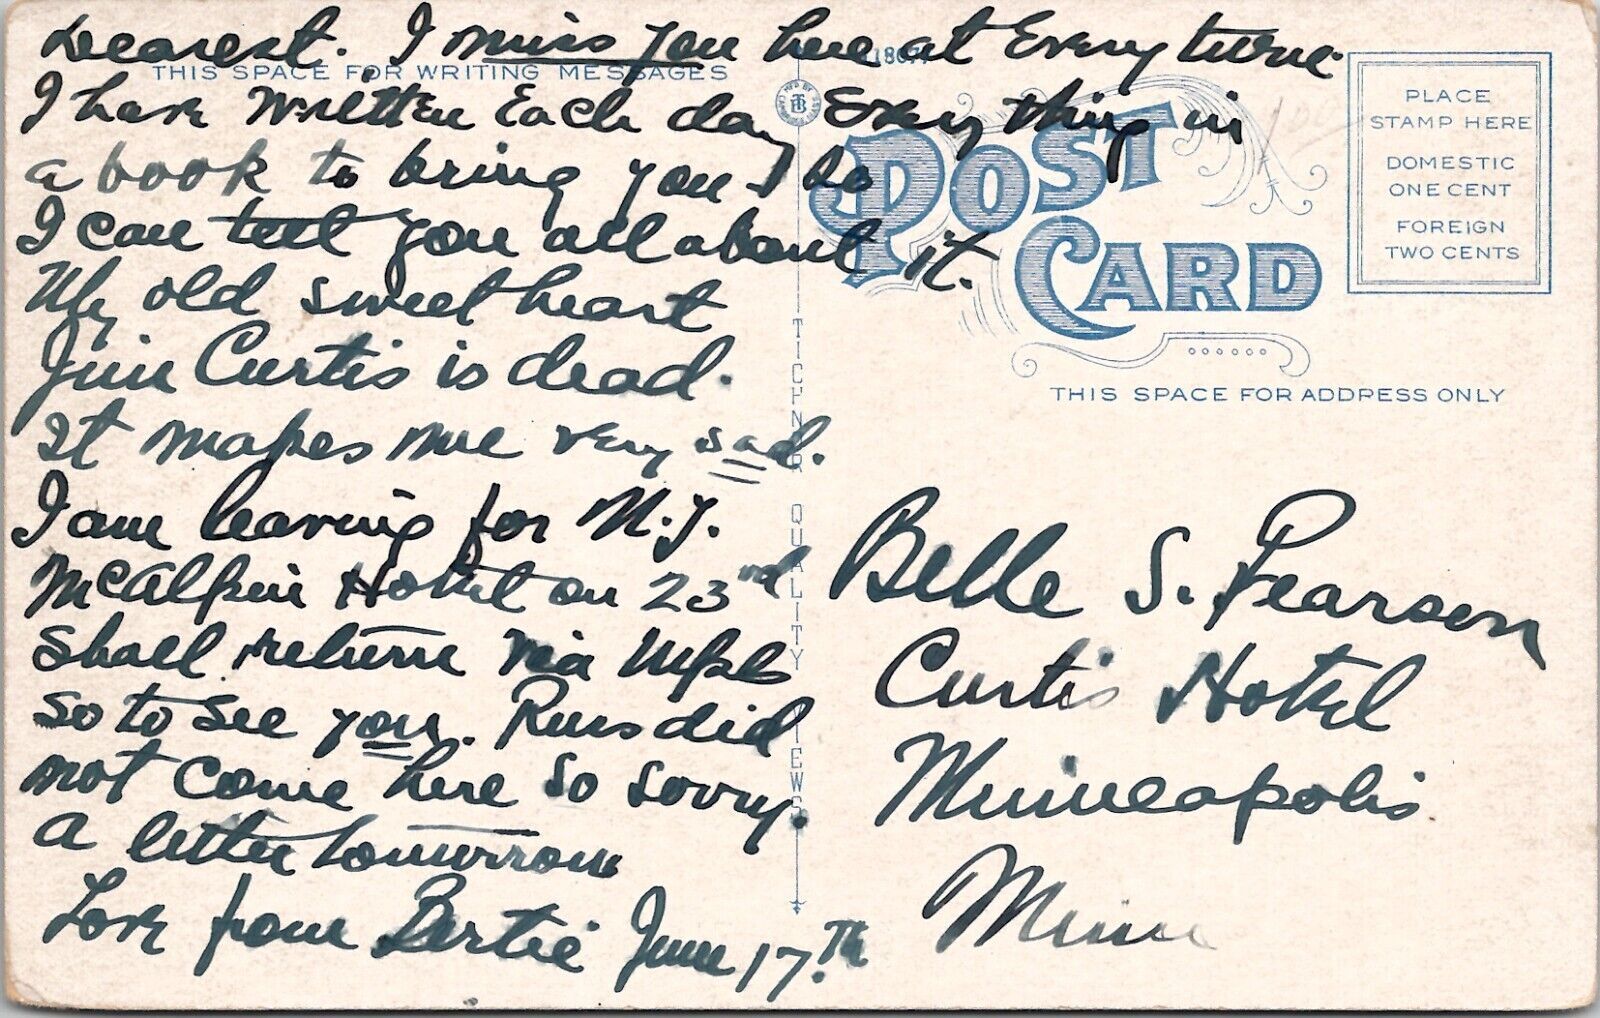 Dearest. I miss you here at Every turne
THIS SPACE FOR WRITING MESSAGES
I have written Each day Every thing in
a book to bring you - so
I can tell you all about it.
My old sweet heart
Jim Curtis is dead.
It makes me very sad.
I am leaving for N.Y.
McAlpin Hotel on 23rd
shall return via Mpls
so to see you. Russ did
not come here so sorry.
A letter tomorrow
Love from Bertie June 17.Th
TICHNOR QUALITY VIEWS
POST CARD
PLACE
STAMP HERE
DOMESTIC
ONE CENT
FOREIGN
TWO CENTS
THIS SPACE FOR ADDRESS ONLY
Belle S. Pearson
Curtis Hotel
Minneapolis
Minn